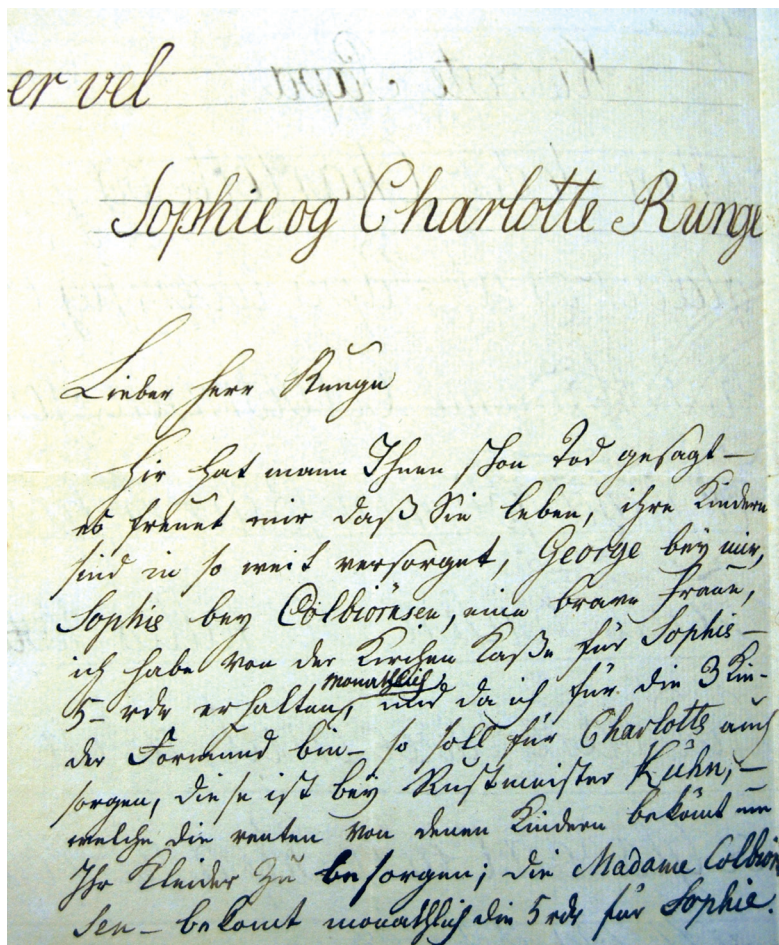 er vel
Sophie og Charlotte Runge
Lieber Herr Runge
Hir hat mann Ihnen schon Tod gesagt —
es freuet mir daß Sie leben, ihre Kindern
sind in so weit versorget, George bey mir,
Sophie bey Colbiörnsen, eine brave Fraue,
ich habe von der Kirchen Kaße für Sophie —
5– rdr erhalten, monathlich und da ich für die 3 Kin-
der Formund bin – so soll für Charlotte auch
sorgen, diese ist bey Rustmeister Kühn, –
welche die renten von denen Kindern bekömt um
Ihr Kleider zu besorgen; die Madame Colbiörn
sen – bekomt monathlich die 5 rdr für Sophie.